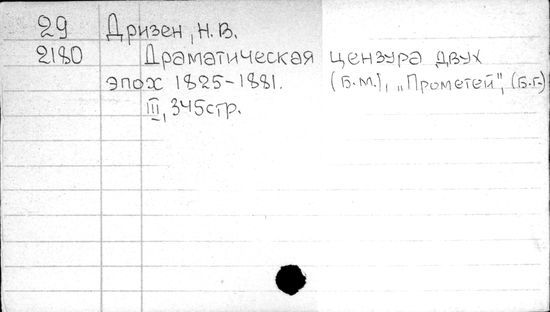 29 Дризен, Н. В.
2180 Драматическая цензура двух
эпох 1825-1881. (Б.м.), „Прометей", (Б.г.)
III, 345стр.